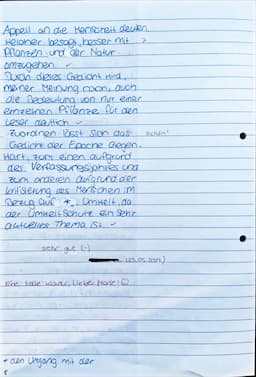 Appell an die Menschheit deuten,
welcher besagt, besser mit
Pflanzen und der Natur
umzugehen.
Durch dieses Gedicht wird,
meiner Meinung nach, auch
die Bedeutung von nur einer
einzelnen Pflanze für den
Leser deutlich.
Zuordnen lässt sich das
Gedicht der Epoche Gegen-
wart, zum einen aufgrund
des Verfassungsjahres und
zum anderen aufgrund der
Kritisierung des Menschen im
Bezug auf *, Umwelt, da
der Umweltschutz ein sehr
aktuelles Thema ist.
sehr gut (-)
Eine tolle
* den Umgang mit der